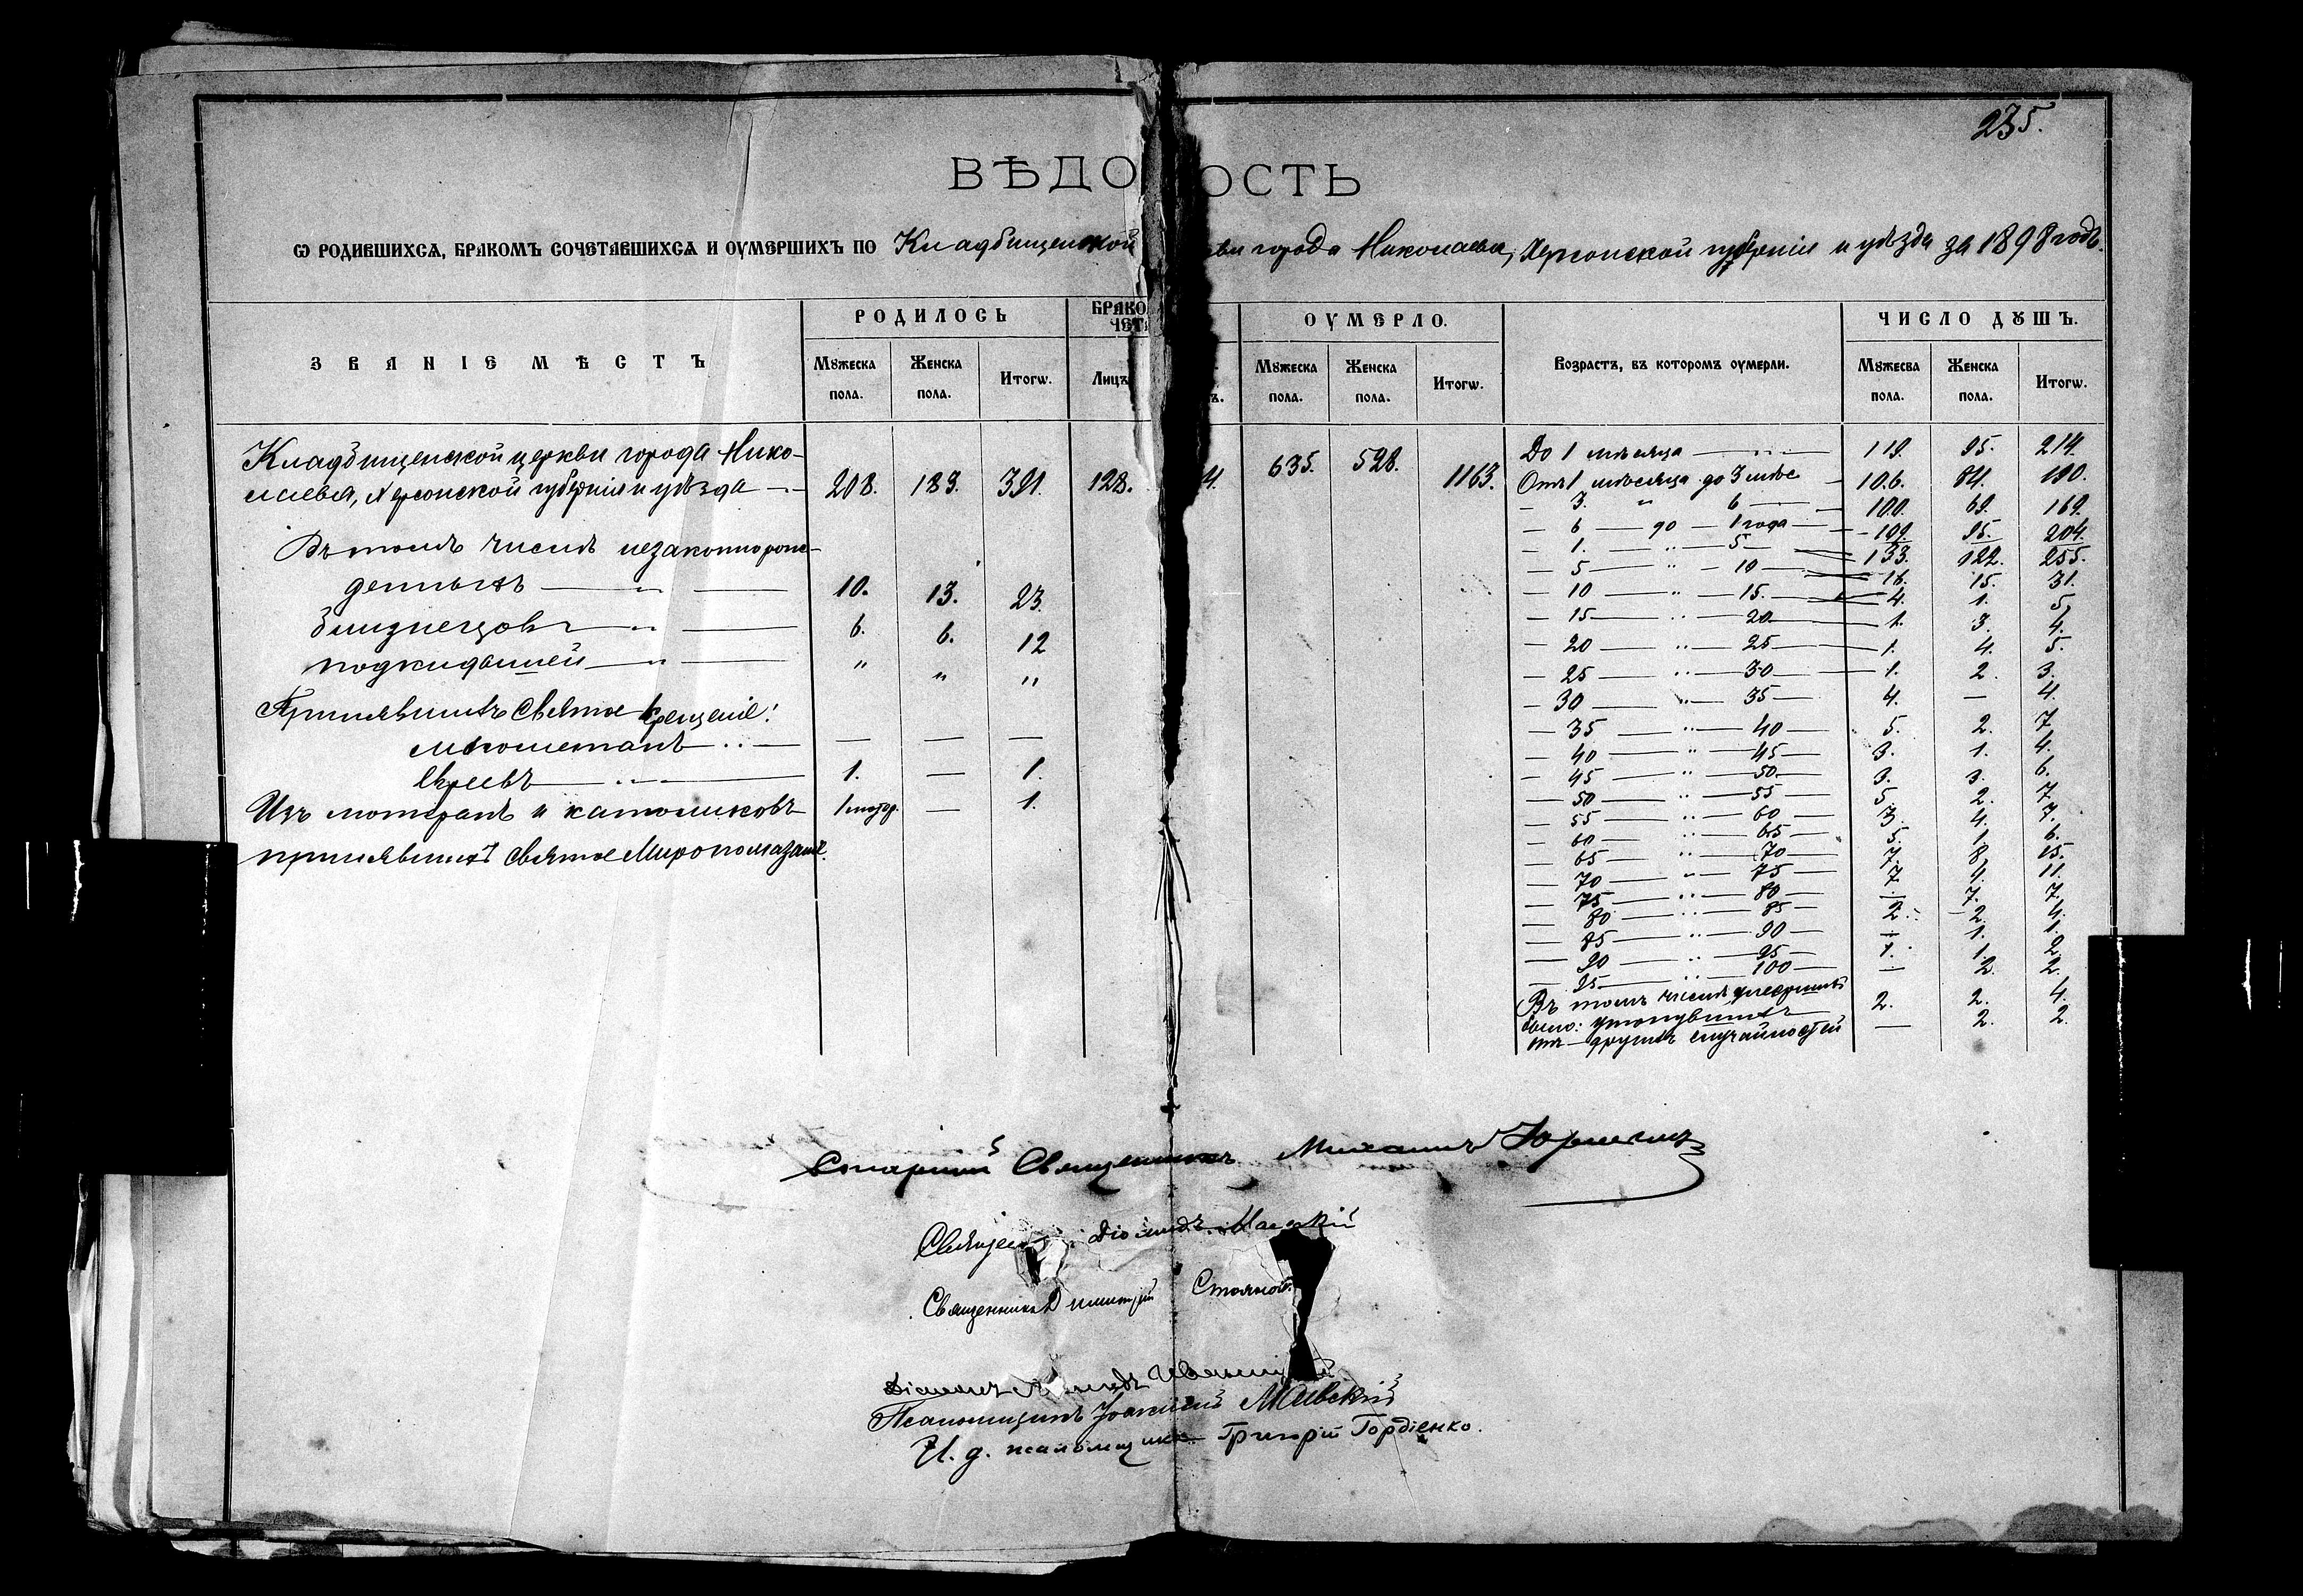 235.
ВѢДО ОСТЬ
Ѡ РОДИВШИХСѦ, БРАКОМЪ СОЧЕТАВШИХСѦ И ОУМЕРШИХЪ ПО Кладбищенской ви города Николаева, Херсонской губерніи и уѣзда за 1898 годъ.
ЗВАНІЕ МѢСТЪ
РОДИЛОСЬ
БРАКО
ЧЕТА
ОУМЕРЛО.
Возрастъ, въ которомъ оумерли.
ЧИСЛО ДꙊШЪ.
Мꙋжеска пола.
Женска пола.
Итогѡ.
Лицъ
ъ.
Мꙋжеска пола.
Женска пола.
Итогѡ.
Мꙋжесва пола.
Женска пола.
Итогѡ.
Кладбищенской церкви города Нико-
лаева, Херсонской губерніи и уѣзда — 208. 183. 391. 128. 4. 635. 528. 1163.
Въ томъ числѣ незаконнорож-
денныхъ — „ — 10. 13. 23.
близнецовъ — „ — 6. 6. 12
подкидышей — „ — „ „ „
Принявшихъ Святое Крещеніе:
магометанъ — — — —
Евреевъ — 1. — 1.
Изъ лютеранъ и католиковъ 1 лютер. — 1.
принявшихъ Святое Миропомазаніе.
До 1 мѣсяца — 119. 95. 214.
Отъ 1 мѣсяца до 3 мѣс 106. 84. 190.
— 3. „ 6 — 100. 69. 169.
— 6 — до — 1 года — 109. 95. 204.
— 1. — „ — 5 — 133. 122. 255.
— 5 — „ — 10 — 16. 15. 31.
— 10 — „ — 15. — 4. 1. 5.
— 15 — „ — 20 — 1. 3. 4.
— 20 — „ — 25 — 1. 4. 5.
— 25 — „ — 30 — 1. 2. 3.
— 30 — „ — 35 — 4. — 4.
— 35 — „ — 40 — 5. 2. 7.
— 40 — „ — 45 — 3. 1. 4.
— 45 — „ — 50. — 3. 3. 6.
— 50 — „ — 55 — 5. 2. 7.
— 55 — „ — 60 — 3. 4. 7.
— 60 — „ — 65 — 5. 1. 6.
— 65 — „ — 70 — 7. 8. 15.
— 70 — „ — 75 — 7. 4. 11.
— 75 — „ — 80 — — 7. 7.
— 80 — „ — 85 — 2. 2. 4.
— 85 — „ — 90 — — 1. 1.
— 90 — „ — 95 — 1. 1. 2.
— 95 — „ — 100 — — 2. 2.
Въ томъ числѣ умершихъ
было: утонувшихъ 2. 2. 4.
отъ другихъ случайностей — 2. 2.
Старшій Священникъ Михаилъ Юрчевичъ
Священ Діомидъ Маевскій
Священникъ Димитрій Стоянов
Діаконъ
Псаломщикъ Іоакимъ Маевскій
И. д. псаломщика Григорій Гордіенко.